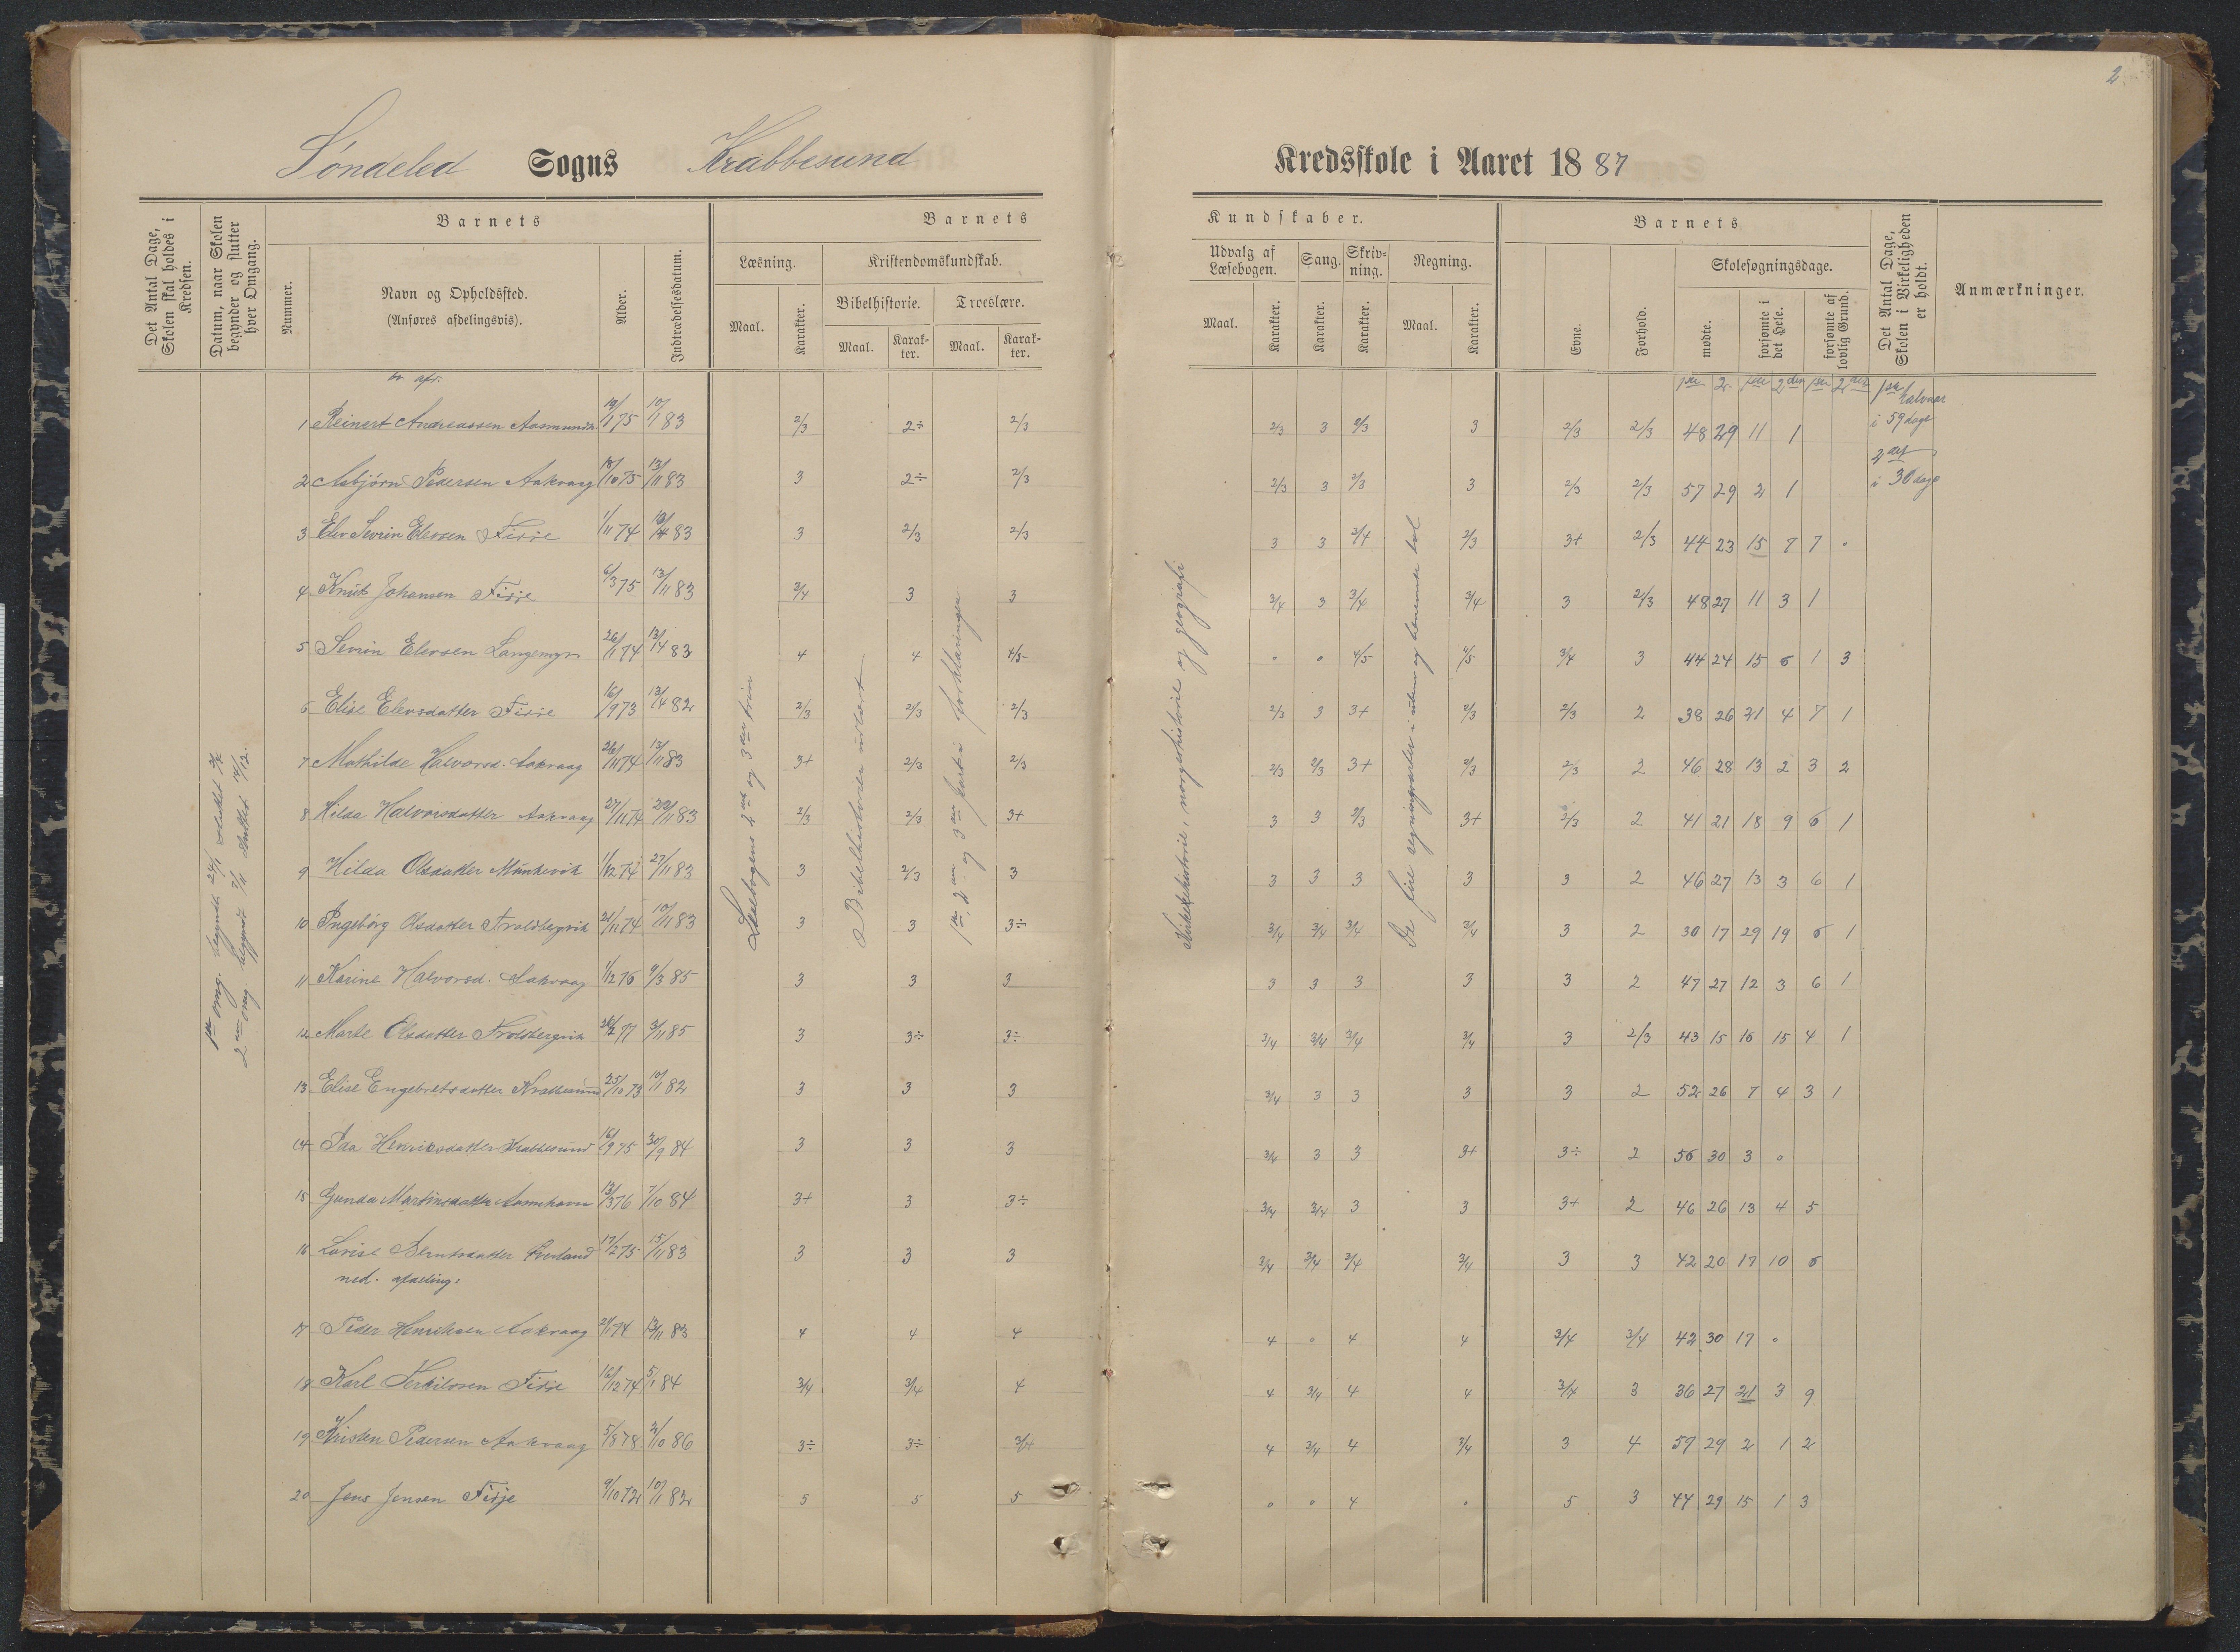 2
Søndeled Sogns Krabbesund Kredsskole i Aaret 1887
Det Antal Dage, Skolen skal holdes i Kredsen.
Datum, naar Skolen begynder og slutter hver Omgang.
Barnets
Nummer.
Navn og Opholdssted.
(Anføres afdelingsvis).
Alder.
Indtrædelsesdatum.
Barnets
Læsning.
Maal.
Karakter.
Kristendomskundskab.
Bibelhistorie.
Maal.
Karakter.
Troeslære.
Maal.
Karakter.
Kundskaber.
Udvalg af Læsebogen.
Maal.
Karakter.
Sang.
Karakter.
Skrivning.
Karakter.
Regning.
Maal.
Karakter.
Barnets
Evne.
Forhold.
Skolesøgningsdage.
mødte.
forsømte i det Hele.
forsømte af lovlig Grund.
Det Antal Dage, Skolen i Virkeligheden er holdt.
Anmærkninger.
Læsebogens 2det og 3die trin
Bibelhistorien utlært
1ste, 2den og 3die part i forklaringen
Kirkehistorie, norgeshistorie og geografi
1ste halvaar
i 59 dage
2det
i 30 dage
1 Reinert Andreassen 19/1 75 10/1 83 2/3 2÷ 2/3 2/3 3 2/3 3 2/3 2/3 48 29 11 1
2 Asbjørn Pedersen Aakvaag 18/10 75 13/11 83 3 2÷ 2/3 2/3 3 2/3 3 2/3 2/3 57 29 2 1
3 Elev Sevrin Elevsen Fisje 1/11 74 83 3 2/3 2/3 3 3 3/4 2/3 3+ 2/3 44 23 15 7 7 0
4 Knut Johansen Fisje 6/3 75 13/11 83 3/4 3 3 3/4 3 3/4 3/4 3 2/3 48 27 11 3 1
5 Sevrin Elevsen Langemyr 26/1 74 13/4 83 4 4 4/5 0 0 4/5 4/5 3/4 3 44 24 15 6 1 3
6 Elise Elevsdatter Fisje 16/9 73 13/4 82 2/3 2/3 2/3 2/3 3 3+ 2/3 2/3 2 38 26 21 4 7 1
7 Mathilde Halvorsd. Aakvaag 26/11 74 13/11 83 3+ 2/3 2/3 2/3 2/3 3+ 2/3 2/3 2 46 28 13 2 3 2
8 Hilda Halvorsdatter Aakvaag 27/11 74 22/11 83 2/3 2/3 3+ 3 3 2/3 3+ 2/3 2 41 21 18 9 6 1
9 Hilda Olsdatter 1/12 74 27/11 83 3 2/3 3 3 3 3 3 3 2 46 27 13 3 6 1
10 Ingebörg Olsdatter Troldbergvik 21/11 74 10/11 83 3 3 3÷ 3/4 3/4 3/4 3/4 3 2 30 17 29 19 6 1
11 Karine Halvorsd. Aakvaag 1/12 76 9/3 85 3 3 3 3 3 3 3 3 2 47 27 12 3 6 1
12 Marte Olsdatter Troldbergvik 77 3/11 85 3 3÷ 3÷ 3/4 3/4 3/4 3/4 3 2/3 43 15 16 15 4 1
13 Elise Engebretsdatter Krabbesund 25/10 73 10/1 82 3 3 3 3/4 3 3 3 3 2 52 26 7 4 3 1
14 Henriksdatter Krabbesund 16/9 75 30/9 84 3 3 3 3/4 3 3 3+ 3÷ 2 56 30 3 0
15 Gunda Martinsdatter 13/3 76 7/10 84 3+ 3 3÷ 3/4 3/4 3 3 3+ 2 46 26 13 4 5
16 Lovise Berntsdatter 17/2 75 15/11 83 3 3 3 3/4 3/4 3/4 3/4 3 3 42 20 17 10 6
ned. afdeling:
17 Peder Henriksen Aakvaag 2/1 74 13/11 83 4 4 4 4 0 4 4 3/4 3/4 42 30 17 0
18 Karl Terkilsen Fisje 16/12 74 5/1 84 3/4 3/4 4 4 3/4 4 4 3/4 3 36 27 21 3 9
19 Kristen Pedersen Aakvaag 5/8 78 2/10 86 3÷ 3÷ 3/4 4 3/4 4 3/4 3 4 57 29 2 1 2
20 Jens Jensen Fisje 9/10 72 10/1 82 5 5 5 0 0 4 0 5 3 44 29 15 1 3